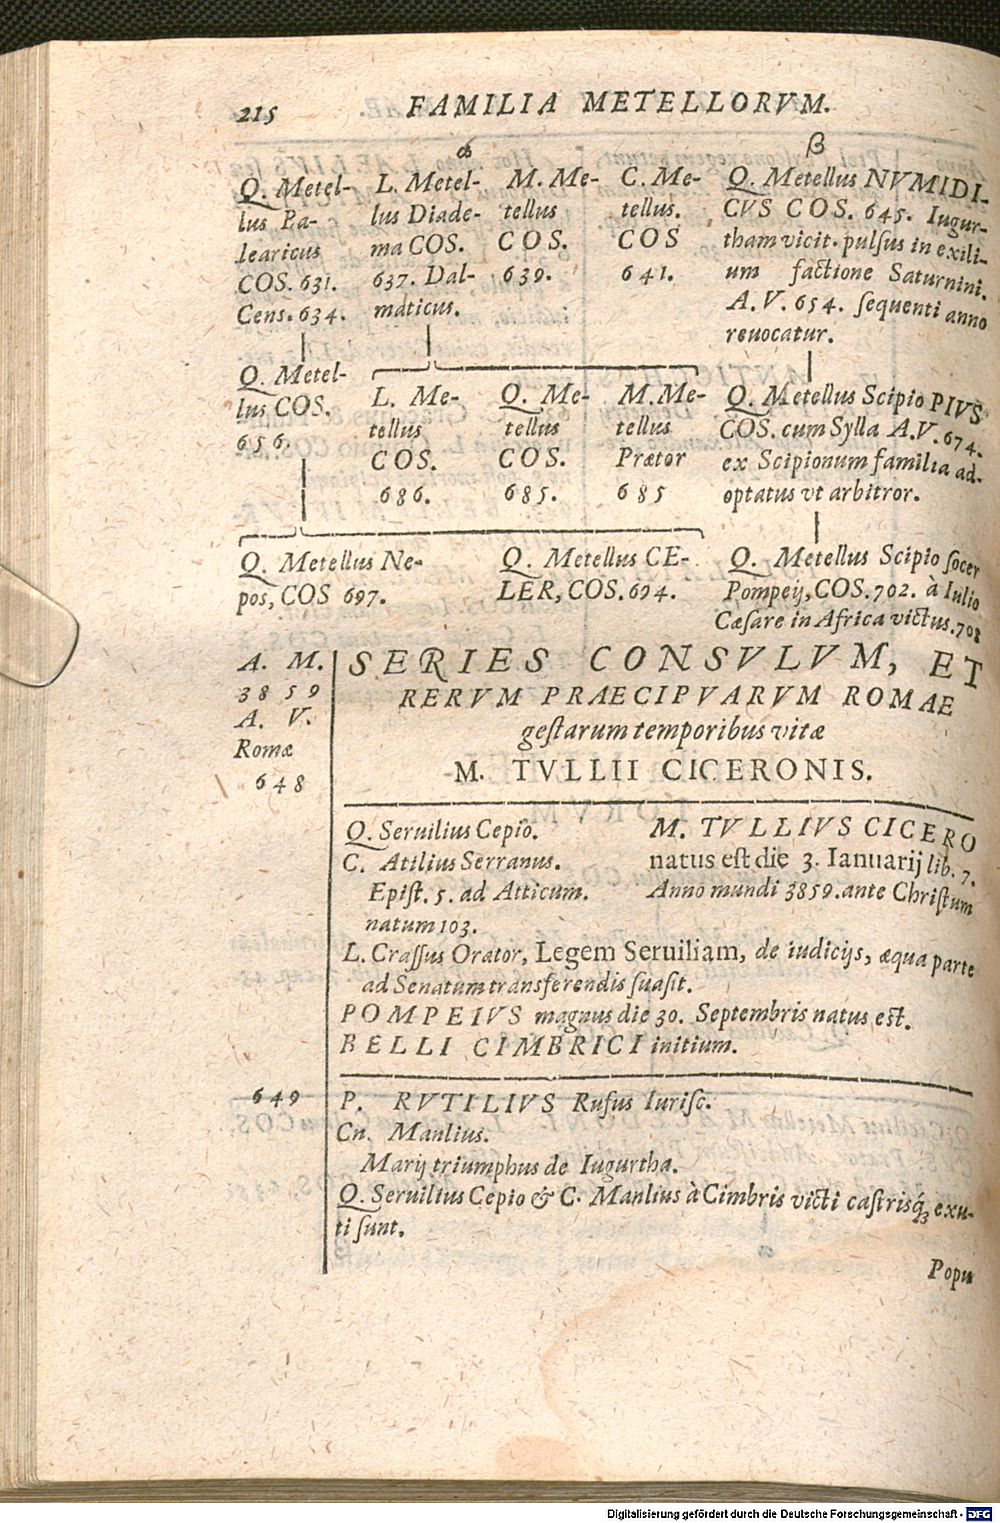 215 FAMILIA METELLORVM.
α
Q. Metel-
lus Ba-
learicus
COS. 631.
Cens. 634.
L. Metel-
lus Diade-
ma COS.
637. Dal-
maticus.
M. Me-
tellus
COS.
639.
C. Me-
tellus.
COS
641.
β
Q. Metellus NVMIDI-
CVS COS. 645. Iugur-
tham vicit. pulſus in exili-
um factione Saturnini.
A. V. 654. ſequenti anno
reuocatur.
Q. Metel-
lus COS.
656.
L. Me-
tellus
COS.
686.
Q. Me-
tellus
COS.
685.
M. Me-
tellus
Prætor
685
Q. Metellus Scipio PIVS
COS. cum Sylla A.V. 674.
ex Scipionum familia ad-
optatus vt arbitror.
Q. Metellus Ne-
pos, COS 697.
Q. Metellus CE-
LER, COS. 694.
Q. Metellus Scipio ſocer
Pompeij, COS. 702. à Iulio
Cæſare in Africa victus. 708
A. M.
3859
A. V.
Romæ
648
SERIES CONSVLVM, ET
RERVM PRAECIPVARVM ROMAE
geſtarum temporibus vitæ
M. TVLLII CICERONIS.
Q. Seruilius Cepio.
C. Atilius Serranus.
M. TVLLIVS CICERO
natus eſt die 3. Ianuarij lib. 7.
Epiſt. 5. ad Atticum. Anno mundi 3859. ante Chriſtum
natum 103.
L. Craſſus Orator, Legem Seruiliam, de iudicijs, æqua parte
ad Senatum transferendis ſuaſit.
POMPEIVS magnus die 30. Septembris natus eſt.
BELLI CIMBRICI initium.
649
P. RVTILIVS Rufus Iuriſc.
Cn. Manlius.
Marij triumphus de Iugurtha.
Q. Seruilius Cepio & C. Manlius à Cimbris victi caſtrisq́; exu-
ti ſunt.
Popu
Digitalisierung gefördert durch die Deutsche Forschungsgemeinschaft - DFG